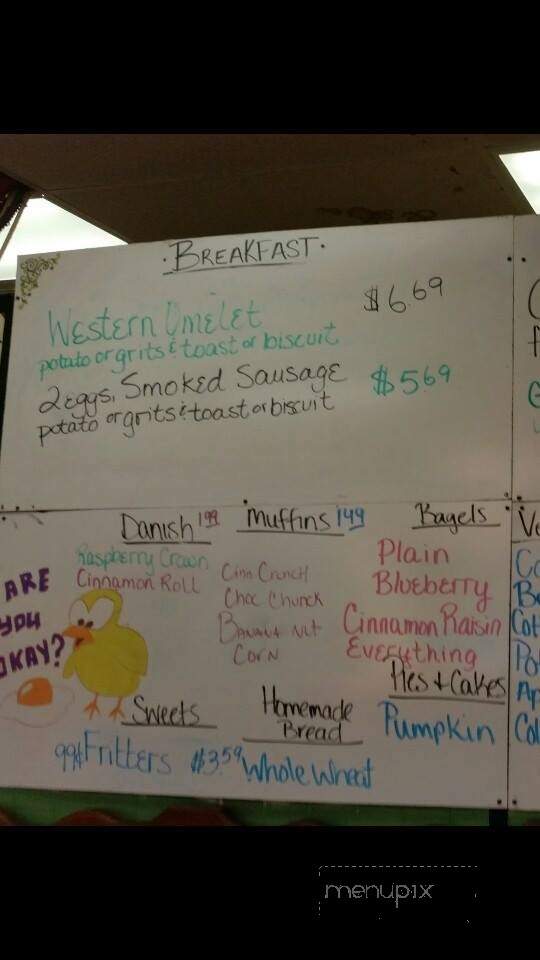 · BREAKFAST ·
Western Omelet $6.69
potato or grits & toast or biscuit
2 eggs, Smoked Sausage $5.69
potato or grits & toast or biscuit
Danish 1.99
Raspberry Crown
Cinnamon Roll
Muffins 1.49
Cinn Crunch
Choc Chunck
Banana Nut
Corn
Bagels
Plain
Blueberry
Cinnamon Raisin
Everything
ARE
YOU
OKAY?
Sweets
99¢ Fritters
Homemade
Bread
$3.59 Whole Wheat
Pies & Cakes
Pumpkin
menupix